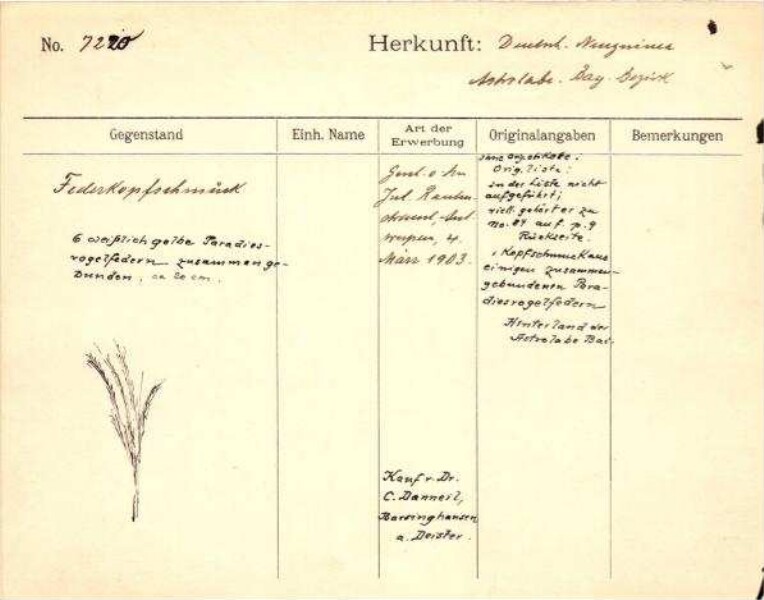 No. 7220
Herkunft: Deutsch. Neuguinea
Astrolabe. Bay. Bezirk
Gegenstand
Einh. Name
Art der
Erwerbung
Originalangaben
Bemerkungen
Federkopfschmuck
6 weißlich gelbe Paradies-
vogelfedern zusammenge-
bunden. ca 20 cm.
v.
Jul.
4.
März 1903.
Kauf v. Dr.
C.
Barsinghausen
a. Deister.
ohne
Orig. liste:
in der Liste nicht
aufgeführt;
viell. gehört er zu
No. 84 auf p. 9
Rückseite.
Kopfschmuck aus
einigen zusammen-
gebundenen Para-
diesvogelfedern
Hinterland der
Astrolabe Bai.